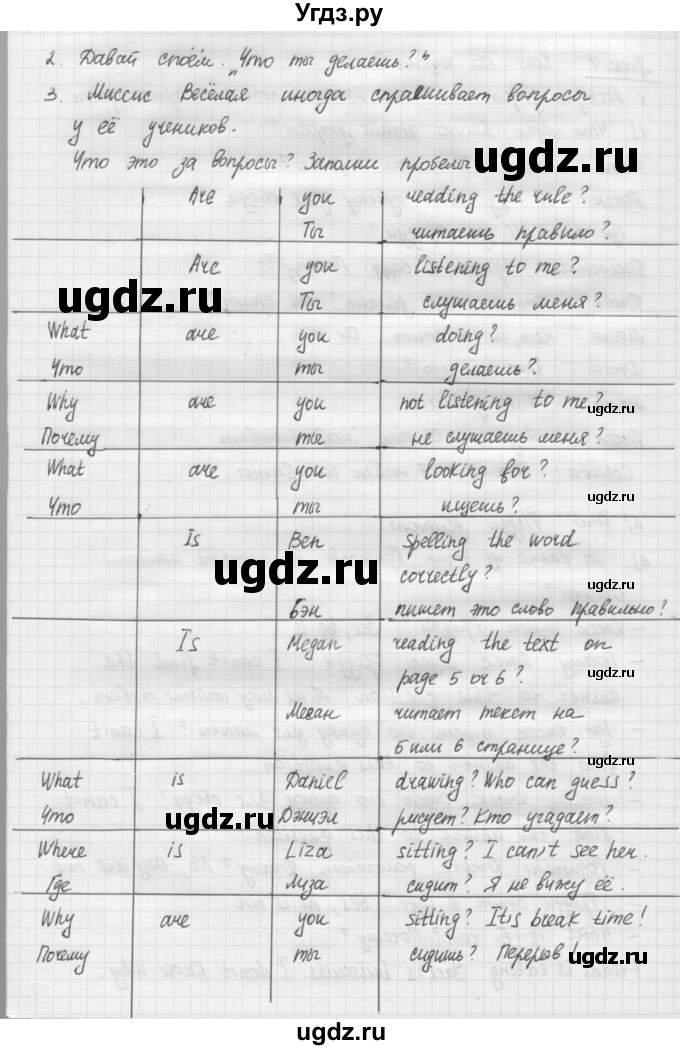 Угдз.ру
2. Давай споём. „Что ты делаешь?".
3. Миссис Весёлая иногда спрашивает вопросы
у её учеников.
Что это за вопросы? Заполни пробелы
Are you reading the rule?
Ты читаешь правило?
Are you listening to me?
Ты слушаешь меня?
ugdz.ru ugdz.ru
What are you doing?
Что ты делаешь?
Why are you not listening to me?
ugdz.ru
Почему ты не слушаешь меня?
What are you looking for?
ugdz.ru
Что ты ищешь?
Is Ben spelling the word
correctly?
ugdz.ru ugdz.ru
Бэн пишет это слово правильно?
Is Megan reading the text on
page 5 or 6?
ugdz.ru
Меган читает текст на
5 или 6 странице?
What is Daniel drawing? Who can guess?
Что Дэниэл рисует? Кто угадает?
ugdz.ru ugdz.ru
Where is Liza sitting? I can't see her.
Где Лиза сидит? Я не вижу её.
Why are you sitting? It's break time!
ugdz.ru
Почему ты сидишь? Перерыв!
ugdz.ru
ugdz.ru